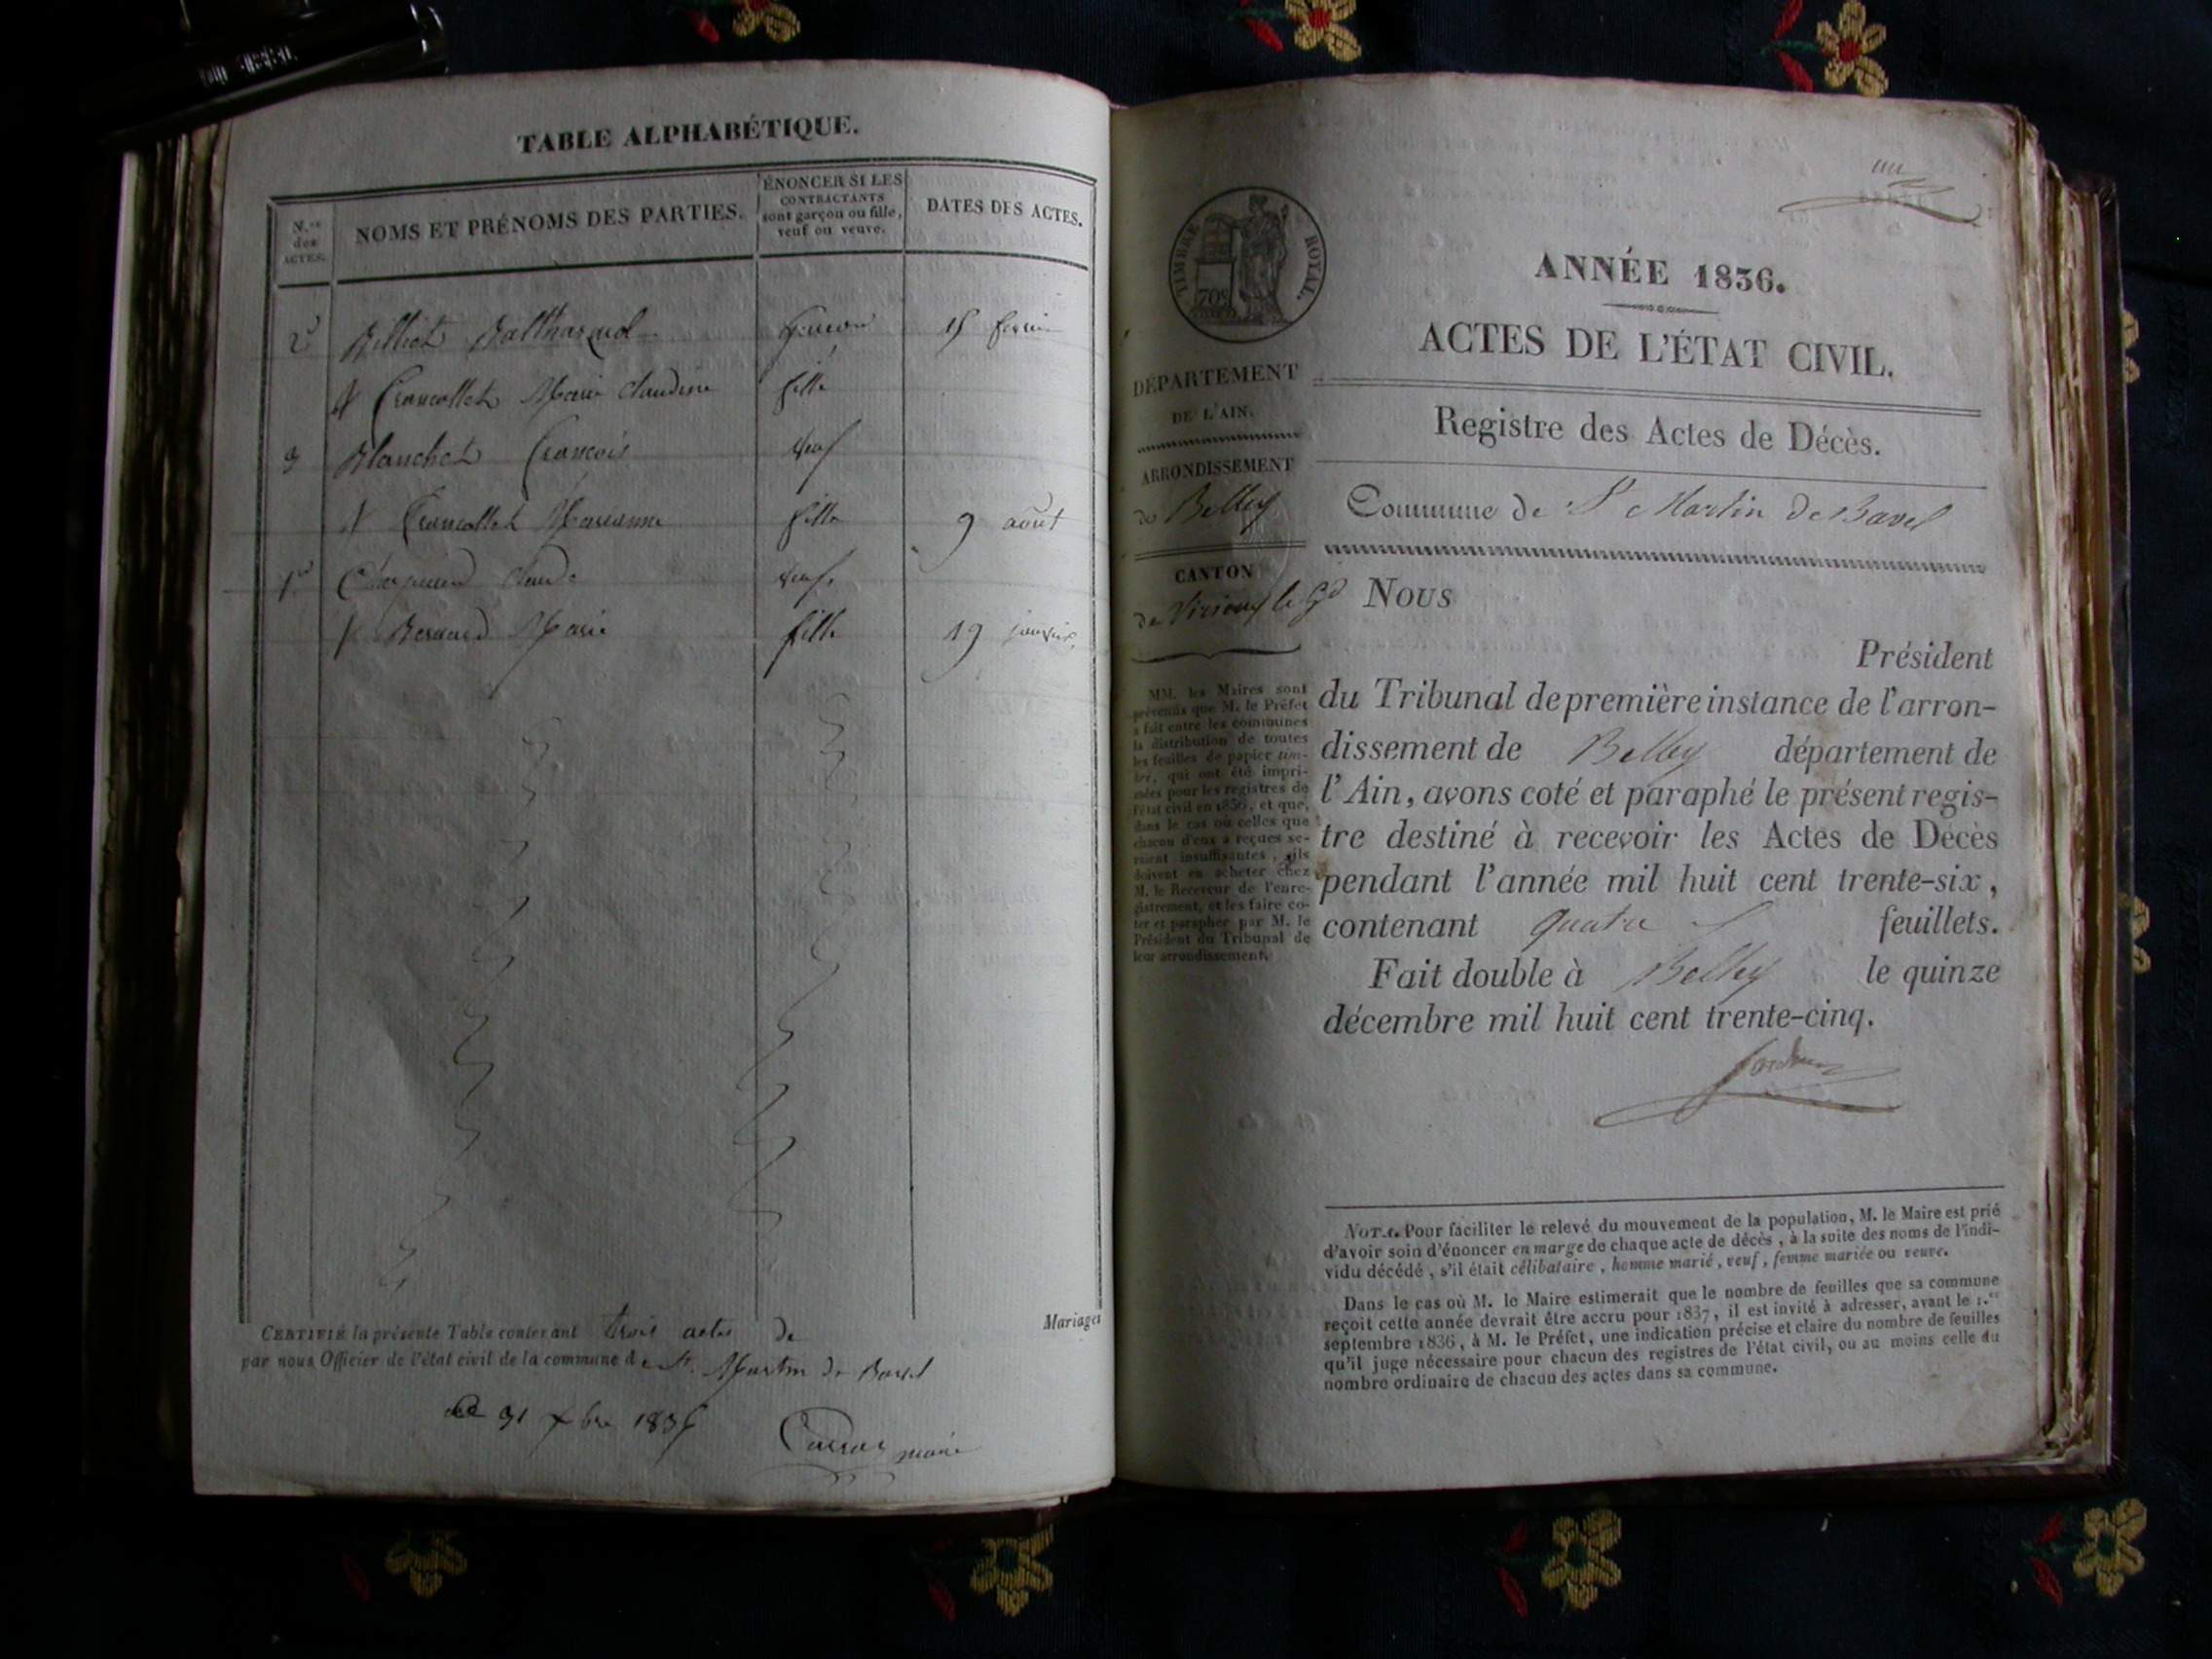 TABLE ALPHABÉTIQUE.
N.os des ACTES.
NOMS ET PRÉNOMS DES PARTIES.
ÉNONCER SI LES
CONTRACTANTS
sont garçon ou fille,
veuf ou veuve.
DATES DES ACTES.
2 Billiet Balthazard garçon 15 février
& Francollet Marie Claudine fille
3 Blanchet François veuf
& Francollet Marianne fille 9 août
1 Claude veuf
& Bernard Marie fille 19 janvier
CERTIFIÉ la présente Table contenant trois actes de Mariages
par nous Officier de l'état civil de la commune de St. Martin de Bavel
ce 31 xbre 1836
maire
TIMBRE ROYAL.
70c
DÉPARTEMENT
DE L'AIN.
ARRONDISSEMENT
de Belley
CANTON
de Virieux le gd
MM. les Maires sont
prévenus que M. le Préfet
a fait entre les communes
la distribution de toutes
les feuilles de papier tim-
bré, qui ont été impri-
mées pour les registres de
l'état civil en 1836, et que,
dans le cas où celles que
chacun d'eux a reçues se-
raient insuffisantes, ils
doivent en acheter chez
M. le Receveur de l'enre-
gistrement, et les faire co-
ter et parapher par M. le
Président du Tribunal de
leur arrondissement.
ANNÉE 1836.
ACTES DE L'ÉTAT CIVIL.
Registre des Actes de Décès.
Commune de St Martin de Bavel
Nous
Président
du Tribunal de première instance de l'arron-
dissement de Belley département de
l'Ain, avons coté et paraphé le présent regis-
tre destiné à recevoir les Actes de Décès
pendant l'année mil huit cent trente-six,
contenant quatre feuillets.
Fait double à Belley le quinze
décembre mil huit cent trente-cinq.
NOTA. Pour faciliter le relevé du mouvement de la population, M. le Maire est prié
d'avoir soin d'énoncer en marge de chaque acte de décès, à la suite des noms de l'indi-
vidu décédé, s'il était célibataire, homme marié, veuf, femme mariée ou veuve.
Dans le cas où M. le Maire estimerait que le nombre de feuilles que sa commune
reçoit cette année devrait être accru pour 1837, il est invité à adresser, avant le 1.er
septembre 1836, à M. le Préfet, une indication précise et claire du nombre de feuilles
qu'il juge nécessaire pour chacun des registres de l'état civil, ou au moins celle du
nombre ordinaire de chacun des actes dans sa commune.